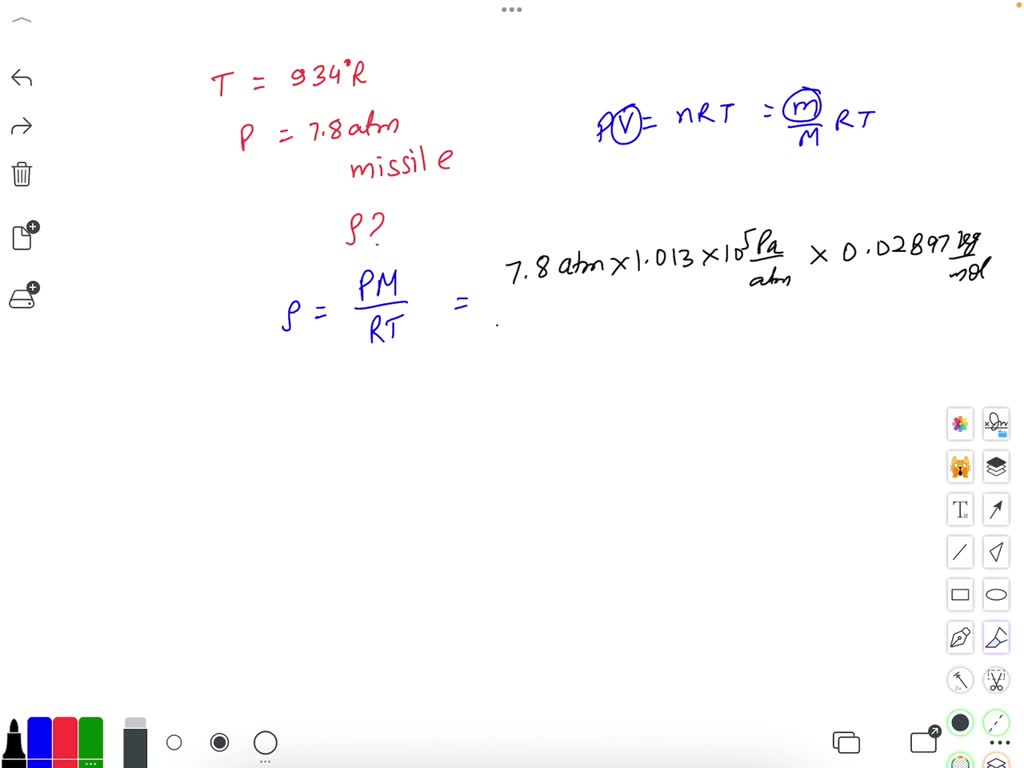 T = 934°R
P = 7.8 atm
missile
PV = nRT = m/M RT
ρ?
ρ = PM/RT = 7.8 atm × 1.013 × 10^5 Pa/atm × 0.02897 kg/mol